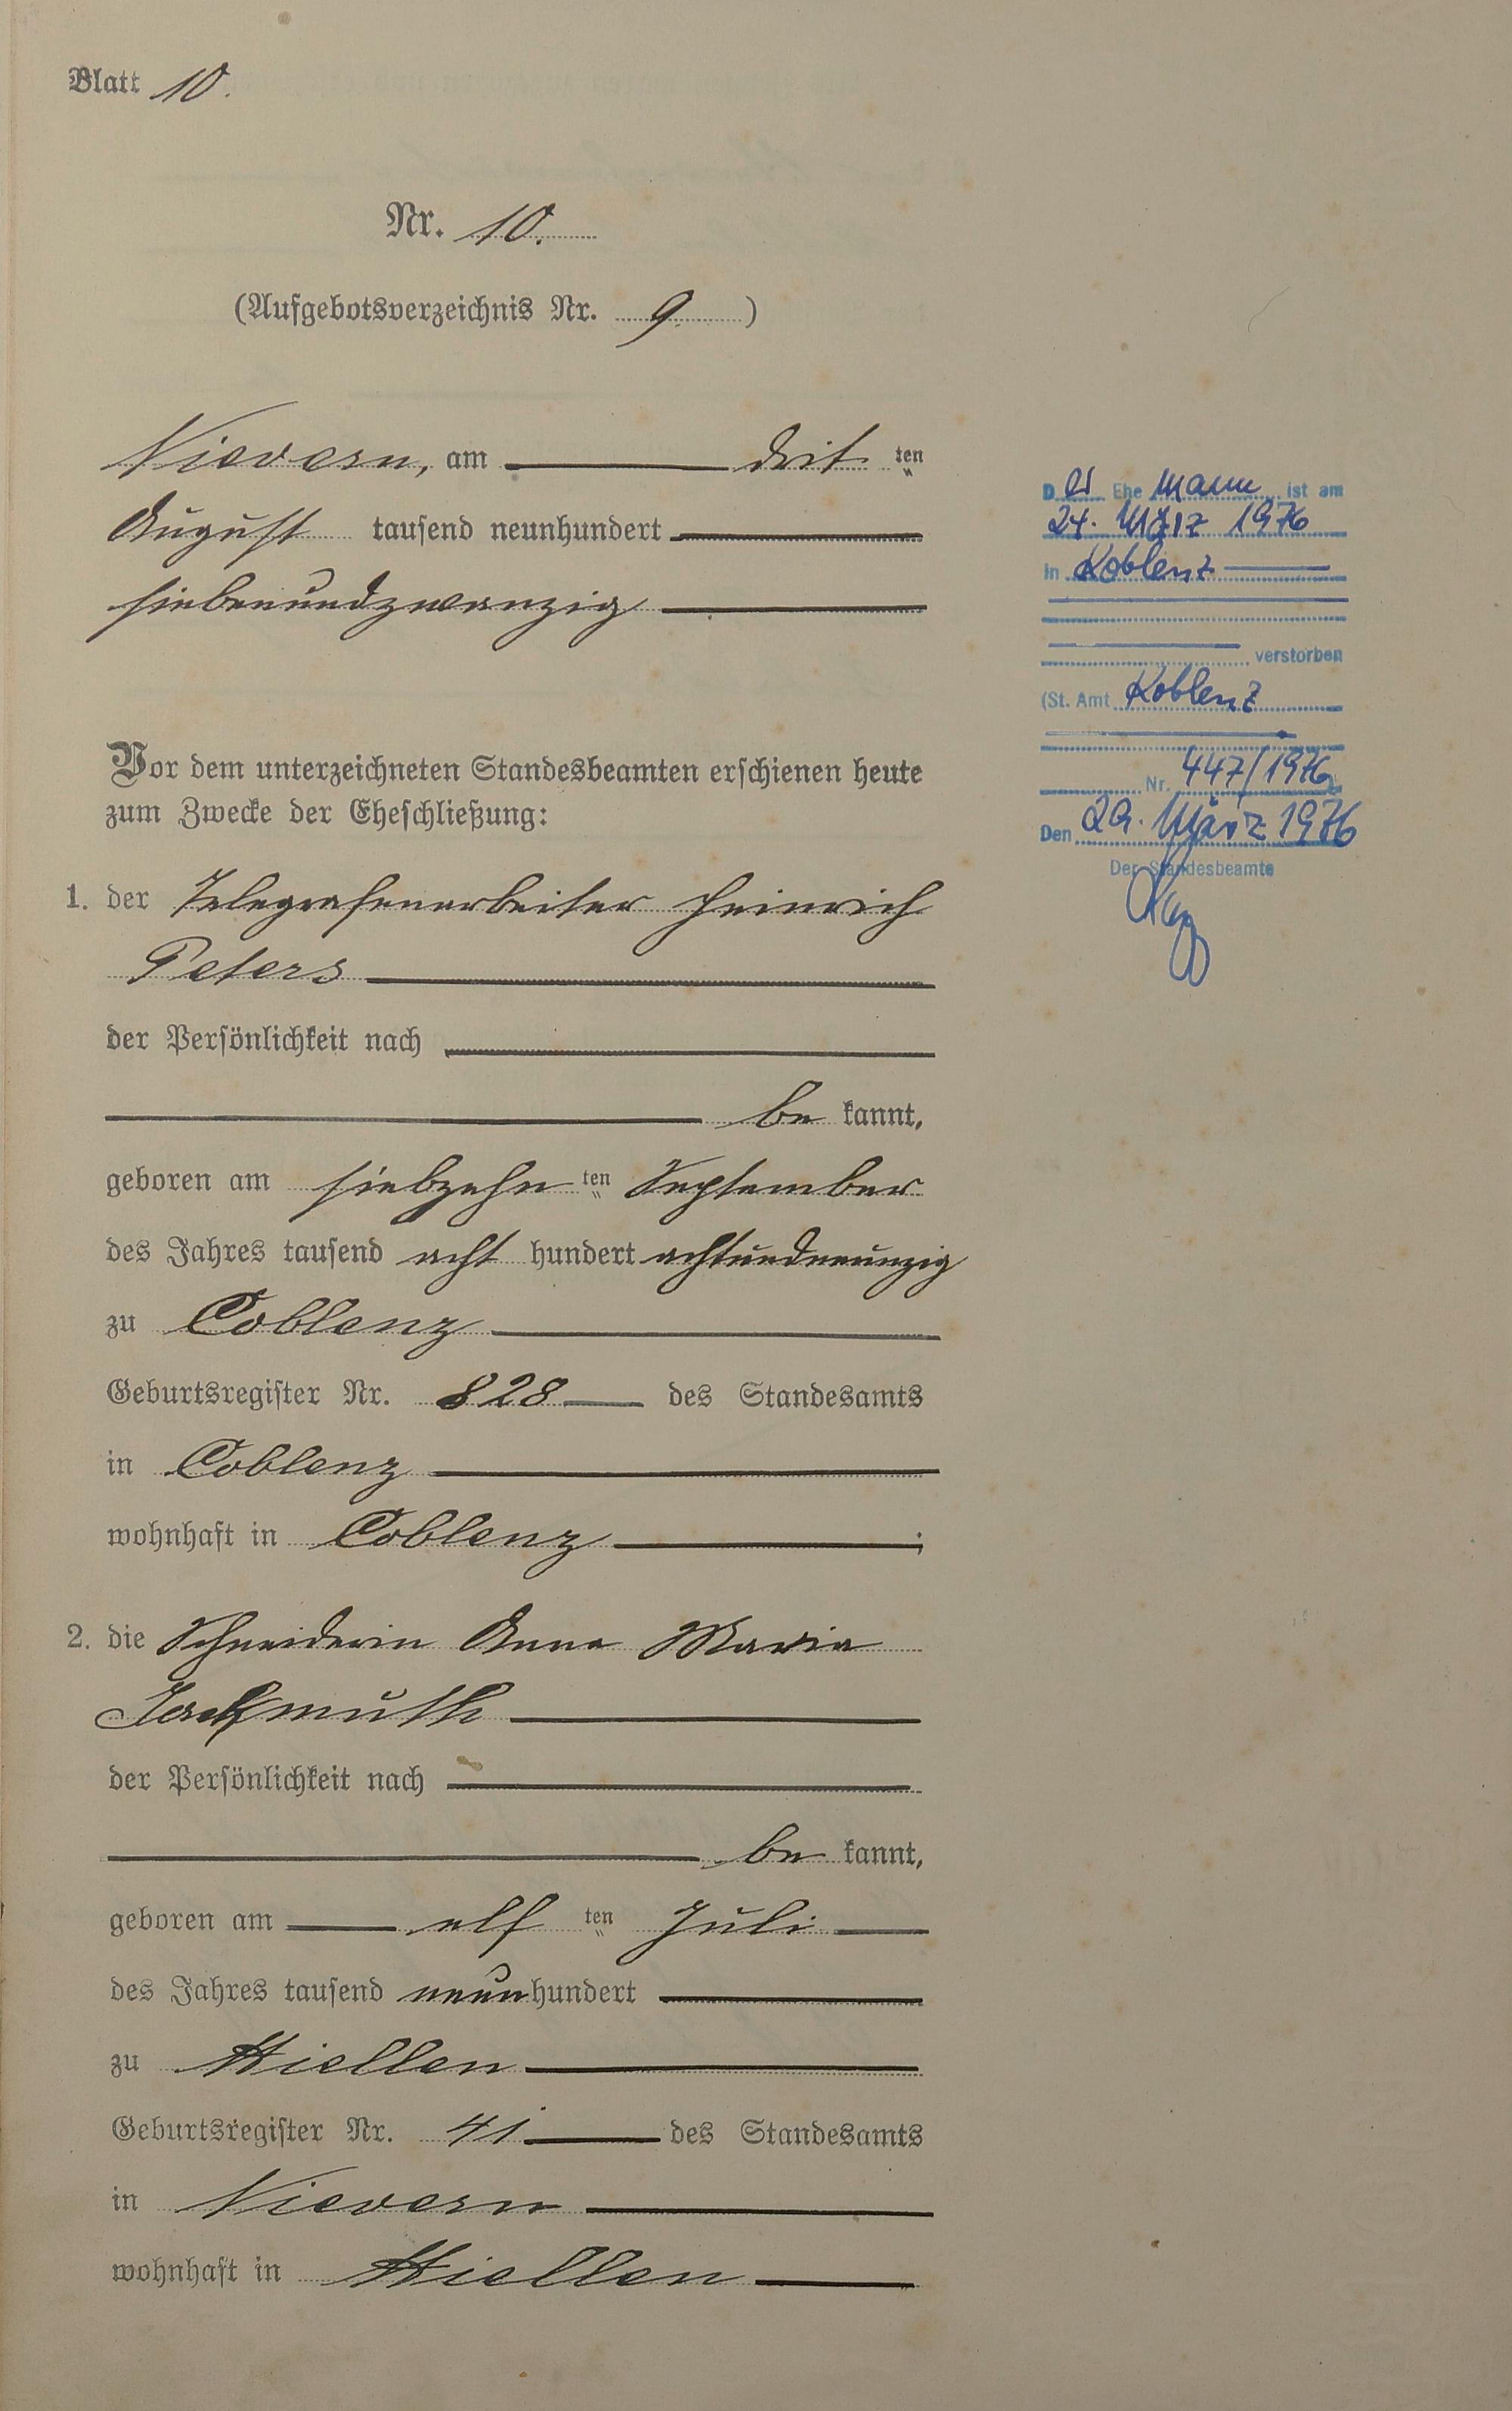 Blatt 10.
Nr. 10.
(Aufgebotsverzeichnis Nr. 9.)
Nievern, am drit ten
August tausend neunhundert
siebenundzwanzig
Vor dem unterzeichneten Standesbeamten erschienen heute
zum Zwecke der Eheschließung:
1. der Telegrafenarbeiter Heinrich
Peters
der Persönlichkeit nach
be kannt,
geboren am siebzehn ten September
des Jahres tausend acht hundert achtundneunzig
zu Coblenz
Geburtsregister Nr. 828 des Standesamts
in Coblenz
wohnhaft in Coblenz ;
2. die Schneiderin Anna Maria
der Persönlichkeit nach
be kannt,
geboren am elf ten Juli
des Jahres tausend neunhundert
zu Miellen
Geburtsregister Nr. 41 des Standesamts
in Nievern
wohnhaft in Miellen
Der Ehe mann ist am
24. März 1976
in Koblenz
verstorben
(St. Amt Koblenz
Nr. 447/1976)
Den 29. März 1976
Der Standesbeamte